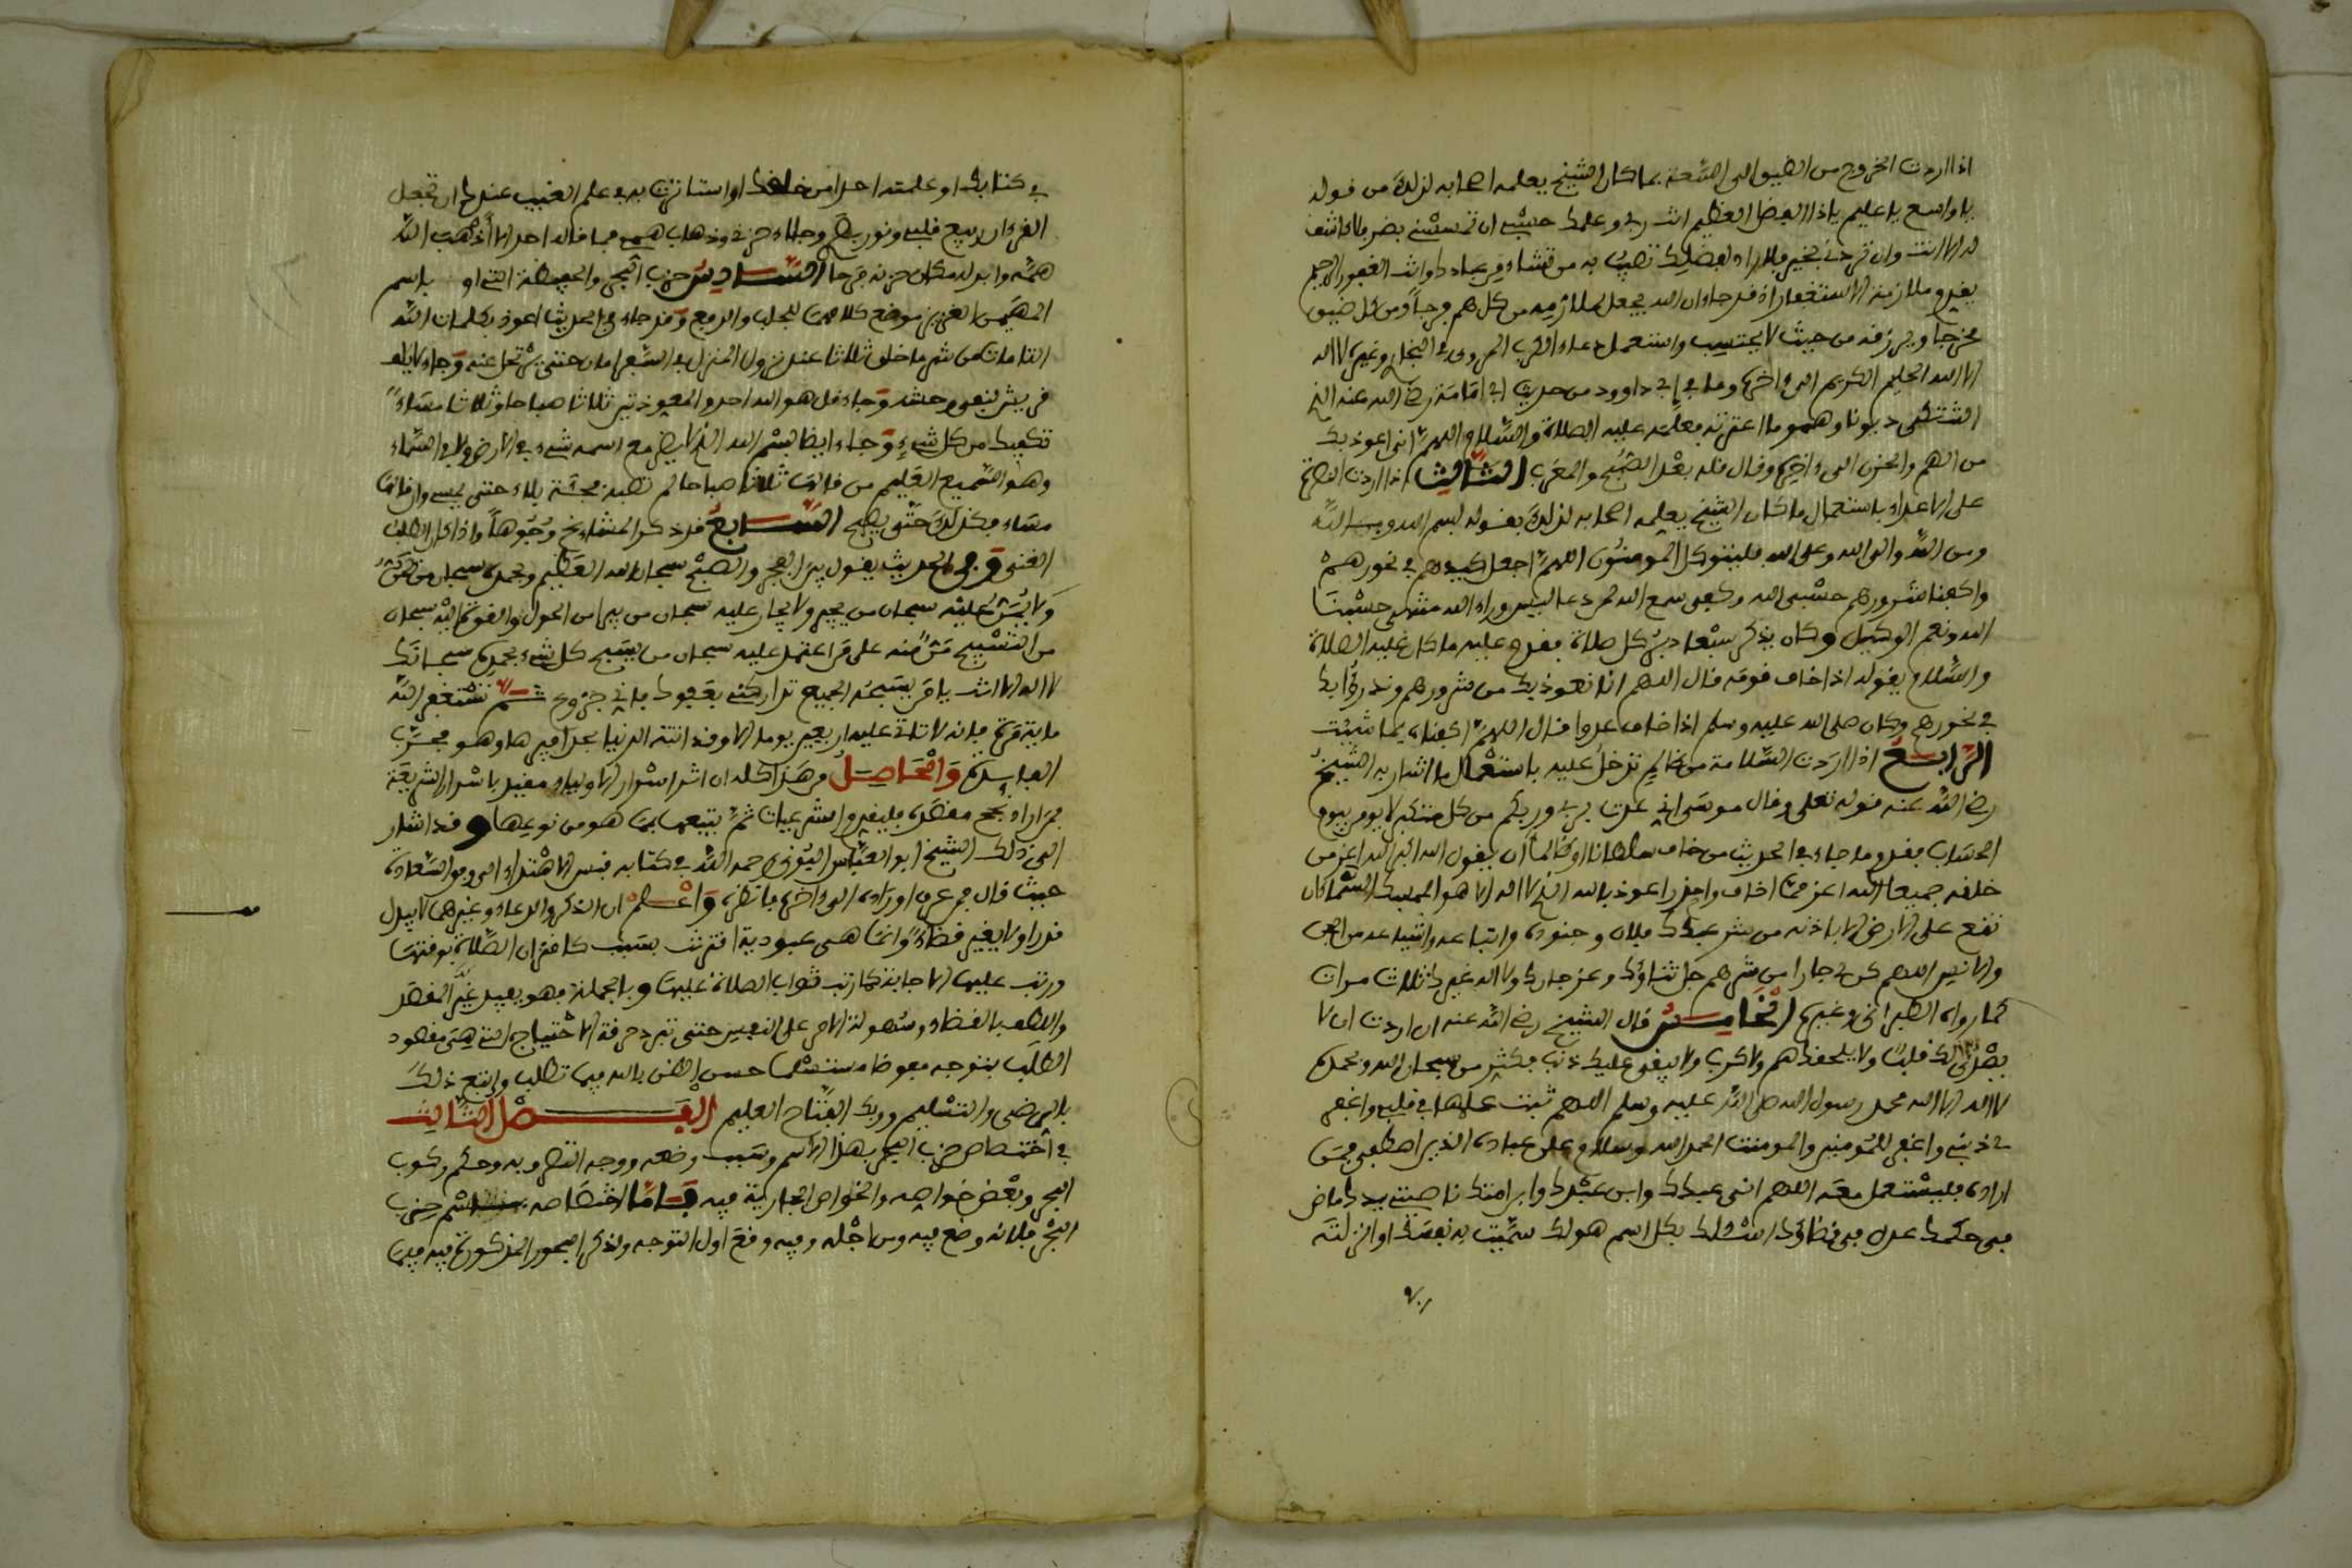 اذا اردت الخروج من الضيق الى السعة بما كان الشيخ يعلمه اصحابه لذلك من قوله
يا واسع يا عليم يا ذا الفضل العظيم انت ربي وعلمك حسبي ان تمسسني بضر فلا كاشف
له الا انت وان تردني بخير فلا راد لفضلك تصيب به من تشاء من عبادك وانت الغفور الرحيم
وملازمة الاستغفار اذ قد جاء ان الله يجعل لملازمه من كل هم فرجا ومن كل ضيق
مخرجا ويرزقه من حيث لا يحتسب واستعمل دعاء الكرب المروي في البخاري وغيره لا اله
الا الله الحليم الكريم الى اخره وما في ابي داوود من حديث ابي امامة رضي الله عنه الذي
اشتكى ديونا وهموما اعترته فعلمه عليه الصلاة والسلام اللهم اني اعوذ بك
من الهم والحزن الى ءاخره وقال قله بعد الصبح والمغرب الثالث اذا اردت النصرة
على الاعداء باستعمال ما كان الشيخ يعلمه اصحابه لذلك بقوله بسم الله وبالله
ومن الله والى الله وعلى الله فليتوكل المومنون اللهم اجعل كيدهم في نحورهم
واكفنا شرورهم حسبي الله وكفى سمع الله لمن دعا ليس وراء الله منتهى حسبنا
الله ونعم الوكيل وكان يذكر سبعا دبر كل صلاة عليه الصلاة
والسلام يقوله اذا خاف قوما قال اللهم انا نعوذ بك من شرورهم وندرؤا بك
في نحورهم وكان صلى الله عليه وسلم اذا خاف عدوا قال اللهم اكفناه بما شئت
الرابع اذا اردت السلامة من ظالم تدخل عليه باستعمال ما اشار به الشيخ
رضي الله عنه قوله تعلى وقال موسى اني عذت بربي وربكم من كل متكبر لا يومن بيوم
الحساب ما جاء في الحديث من خاف سلطانا او ظالما ان يقول الله اكبر الله اعز من
خلقه جميعا الله اعز مما اخاف واحذر اعوذ بالله الذي لا اله الا هو الممسك السماء ان
تقع على الارض الا باذنه من شر عبدك فلان وجنوده واتباعه واشياعه من الجن
والانس اللهم كن لي جارا من شرهم جل ثناؤك وعز جارك ولا اله غيرك ثلاث مرات
كما رواه الطبراني وغيره الخامس قال الشيخ رضي الله عنه ان اردت ان لا
يصدى لك قلب ولا يلحقك هم ولا كرب ولا يبقى عليك ذنب فكثر من سبحان الله وبحمده
لا اله الا الله محمد رسول الله صلى الله عليه وسلم اللهم ثبت علمها في قلبي واغفر
لي ذنبي واغفر للمومنين والمومنت الحمد لله وسلام على عباده الذين اصطفى فمن
اراده فليستعمل معه اللهم اني عبدك وابن عبدك وابن امتك ناصيتي بيدك ماض
في حكمك عدل في قضاؤك اسئلك بكل اسم هو لك سميت به نفسك او انزلته
في كتابك او علمته احدا من خلقك او استاثرت به في علم الغيب عندك ان تجعل
القرءان ربيع قلبي ونور بصري وجلاء حزني وذهاب همي فما قاله احد الا اذهب الله
همه وابدله مكان حزنه فرحا السادس حزب البحر والحفيظة التي او باسم
المهيمن العزيز موضع كلاهما للجلب والدفع وقد جاء في الحديث اعوذ بكلمات الله
التامات من شر ما خلق ثلاثا عند نزول المنزل في السفر امان حتى يرتحل عنه وجاء لايلف
قريش لنفي وحشه وجاء قل هو الله احد والمعوذتين ثلاثا صباحا وثلاثا مساء
تكفيك من كل شيء وجاء ايضا بسم الله الذي لا يضر مع اسمه شيء في الارض ولا في السماء
وهو السميع العليم من قالها ثلاثا صباحا لم تصبه فجأة بلاء حتى يمسي وان قالها
مساء فكذلك حتى يصبح السابع قد ذكر المشايخ وجوها واذا كان الطلب
الغنى ففي الحديث يقول بين الفجر والصبح سبحان الله العظيم وبحمده سبحان من يمن
ولا يمن عليه سبحان من يجير ولا يجار عليه سبحان من يبرأ من الحول والقوة اليه سبحان
من التسبيح منة منه على من اعتمد عليه سبحان من يسبح كل شيء بحمده سبحانك
لا اله الا انت يا من يسبح له الجميع تداركني بعفوك فاني جزوع ثم تستغفر الله
ماية مرة فانه لا تاتي عليه اربعين يوما الا وقد اتته الدنيا بحذافيرها وهو مجرب
الفايدة والحاصل من هذا كله ان اشر اسرار الاولياء مقيد باسرار الشريعة
فمن اراد نجح مقصده فليقدم الشرعيات ثم يتبعها بما هو من نوعها وقد اشار
الى ذلك الشيخ ابو العباس البوني رحمه الله في كتابه قبس الاهتداء الى وفق السعادة
حيث قال من عرف اوراده الى ءاخره فانظره واعلم ان الذكر والدعاء وغيرهما لا يبدل
قدرا ولا يغير قضاء وانما هي عبودية اقترنت بسبب كاقتران الصلاة بوقتها
ورتب عليها الاجابة كما رتب ثواب الصلاة عليها وبالجملة فهو يفيد تيسير القصد
واللطف بالقضاء وسهولة الامر على النفس حتى تبرد حرقة الاحتياج التي هي مقصود
الطلب بتوجه مفوضا مستسلما حسن الظن بالله فيما تطلب واتبع ذلك
بالرضى والتسليم وربك الفتاح العليم الفصل الثالث
في اختصاص حزب البحر بهذا الاسم وسبب وضعه ووجه التصرف به وحكم ركوب
البحر وبعض خواصه والخواص الجارية فيه فاما اختصاصه باسم حزب
البحر فلانه وضع فيه ومن اجله وفيه وقع اول التوجه ولذكر البحور المذكورة فيه فيما